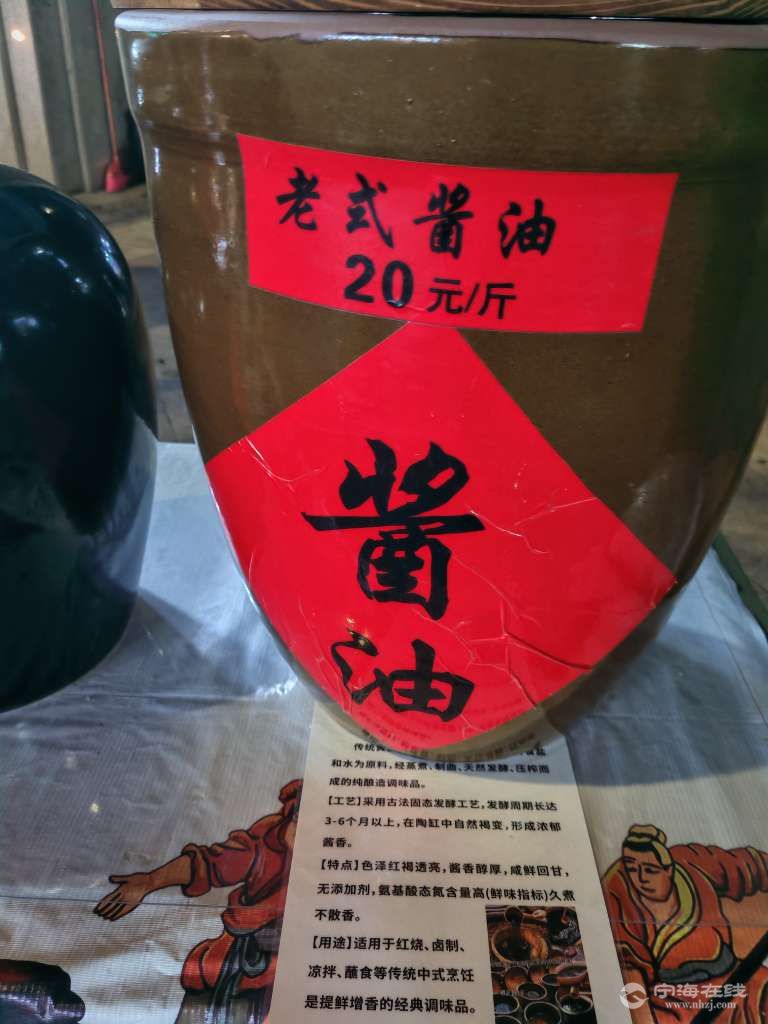 老式酱油
20元/斤
酱油
和水为原料，经蒸煮、制曲、天然发酵、压榨而
成的纯酿造调味品。
【工艺】采用古法固态发酵工艺，发酵周期长达
3-6个月以上，在陶缸中自然褐变，形成浓郁
酱香。
【特点】色泽红褐透亮，酱香醇厚，咸鲜回甘，
无添加剂，氨基酸态氮含量高(鲜味指标)久煮
不散香。
【用途】适用于红烧、卤制、
凉拌、蘸食等传统中式烹饪
是提鲜增香的经典调味品。
宁海在线
www.nhzj.com